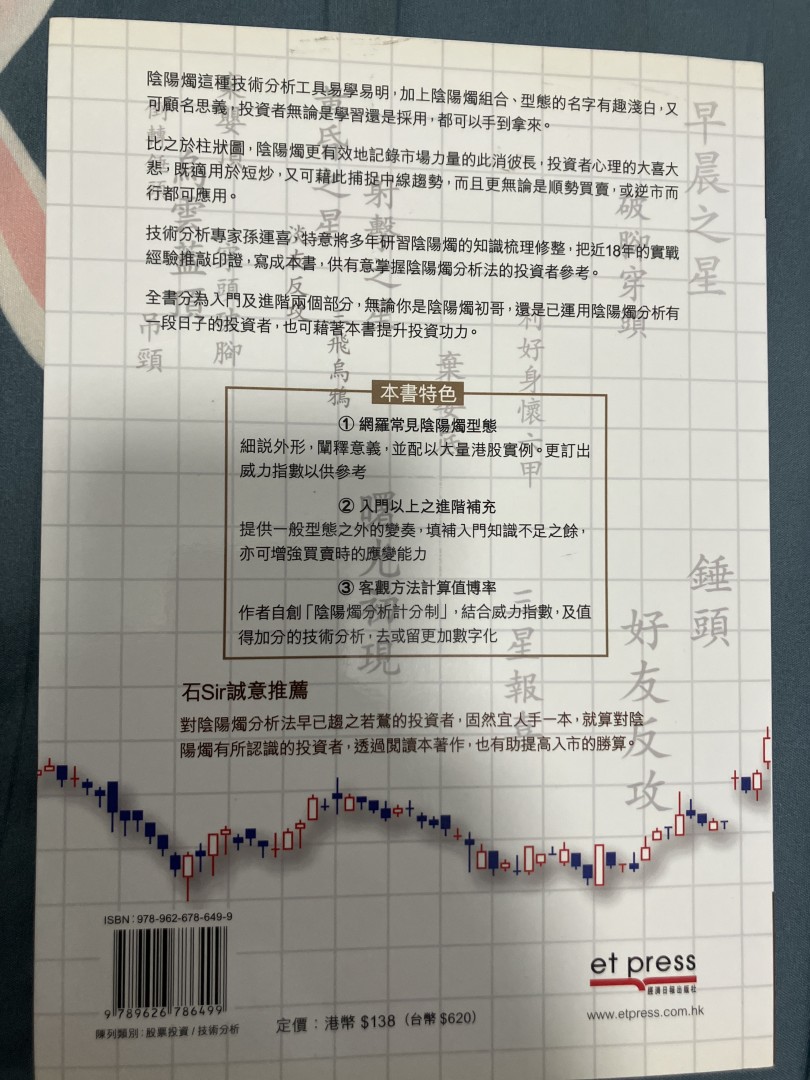 陰陽燭這種技術分析工具易學易明，加上陰陽燭組合、型態的名字有趣淺白，又
可顧名思義，投資者無論是學習還是採用，都可以手到拿來。
比之於柱狀圖，陰陽燭更有效地記錄市場力量的此消彼長，投資者心理的大喜大
悲；既適用於短炒，又可藉此捕捉中線趨勢，而且更無論是順勢買賣，或逆市而
行都可應用。
技術分析專家孫運喜，特意將多年研習陰陽燭的知識梳理修整，把近18年的實戰
經驗推敲印證，寫成本書，供有意掌握陰陽燭分析法的投資者參考。
全書分為入門及進階兩個部分，無論你是陰陽燭初哥，還是已運用陰陽燭分析有
一段日子的投資者，也可藉著本書提升投資功力。
本書特色
① 網羅常見陰陽燭型態
細説外形，闡釋意義，並配以大量港股實例。更訂出
威力指數以供參考
② 入門以上之進階補充
提供一般型態之外的變奏，填補入門知識不足之餘，
亦可增強買賣時的應變能力
③ 客觀方法計算值博率
作者自創「陰陽燭分析計分制」，結合威力指數，及值
得加分的技術分析，去或留更加數字化
石Sir誠意推薦
對陰陽燭分析法早已趨之若鶩的投資者，固然宜人手一本，就算對陰
陽燭有所認識的投資者，透過閱讀本著作，也有助提高入市的勝算。
早晨之星
破腳穿頭
射擊之星
烏雲蓋頂
吊頸
三飛烏鴉
利好身懷六甲
曙光初現
錘頭
好友反攻
ISBN：978-962-678-649-9
9 789626 786499
陳列類別：股票投資 / 技術分析
定價：港幣 $138（台幣 $620）
et press
經濟日報出版社
www.etpress.com.hk